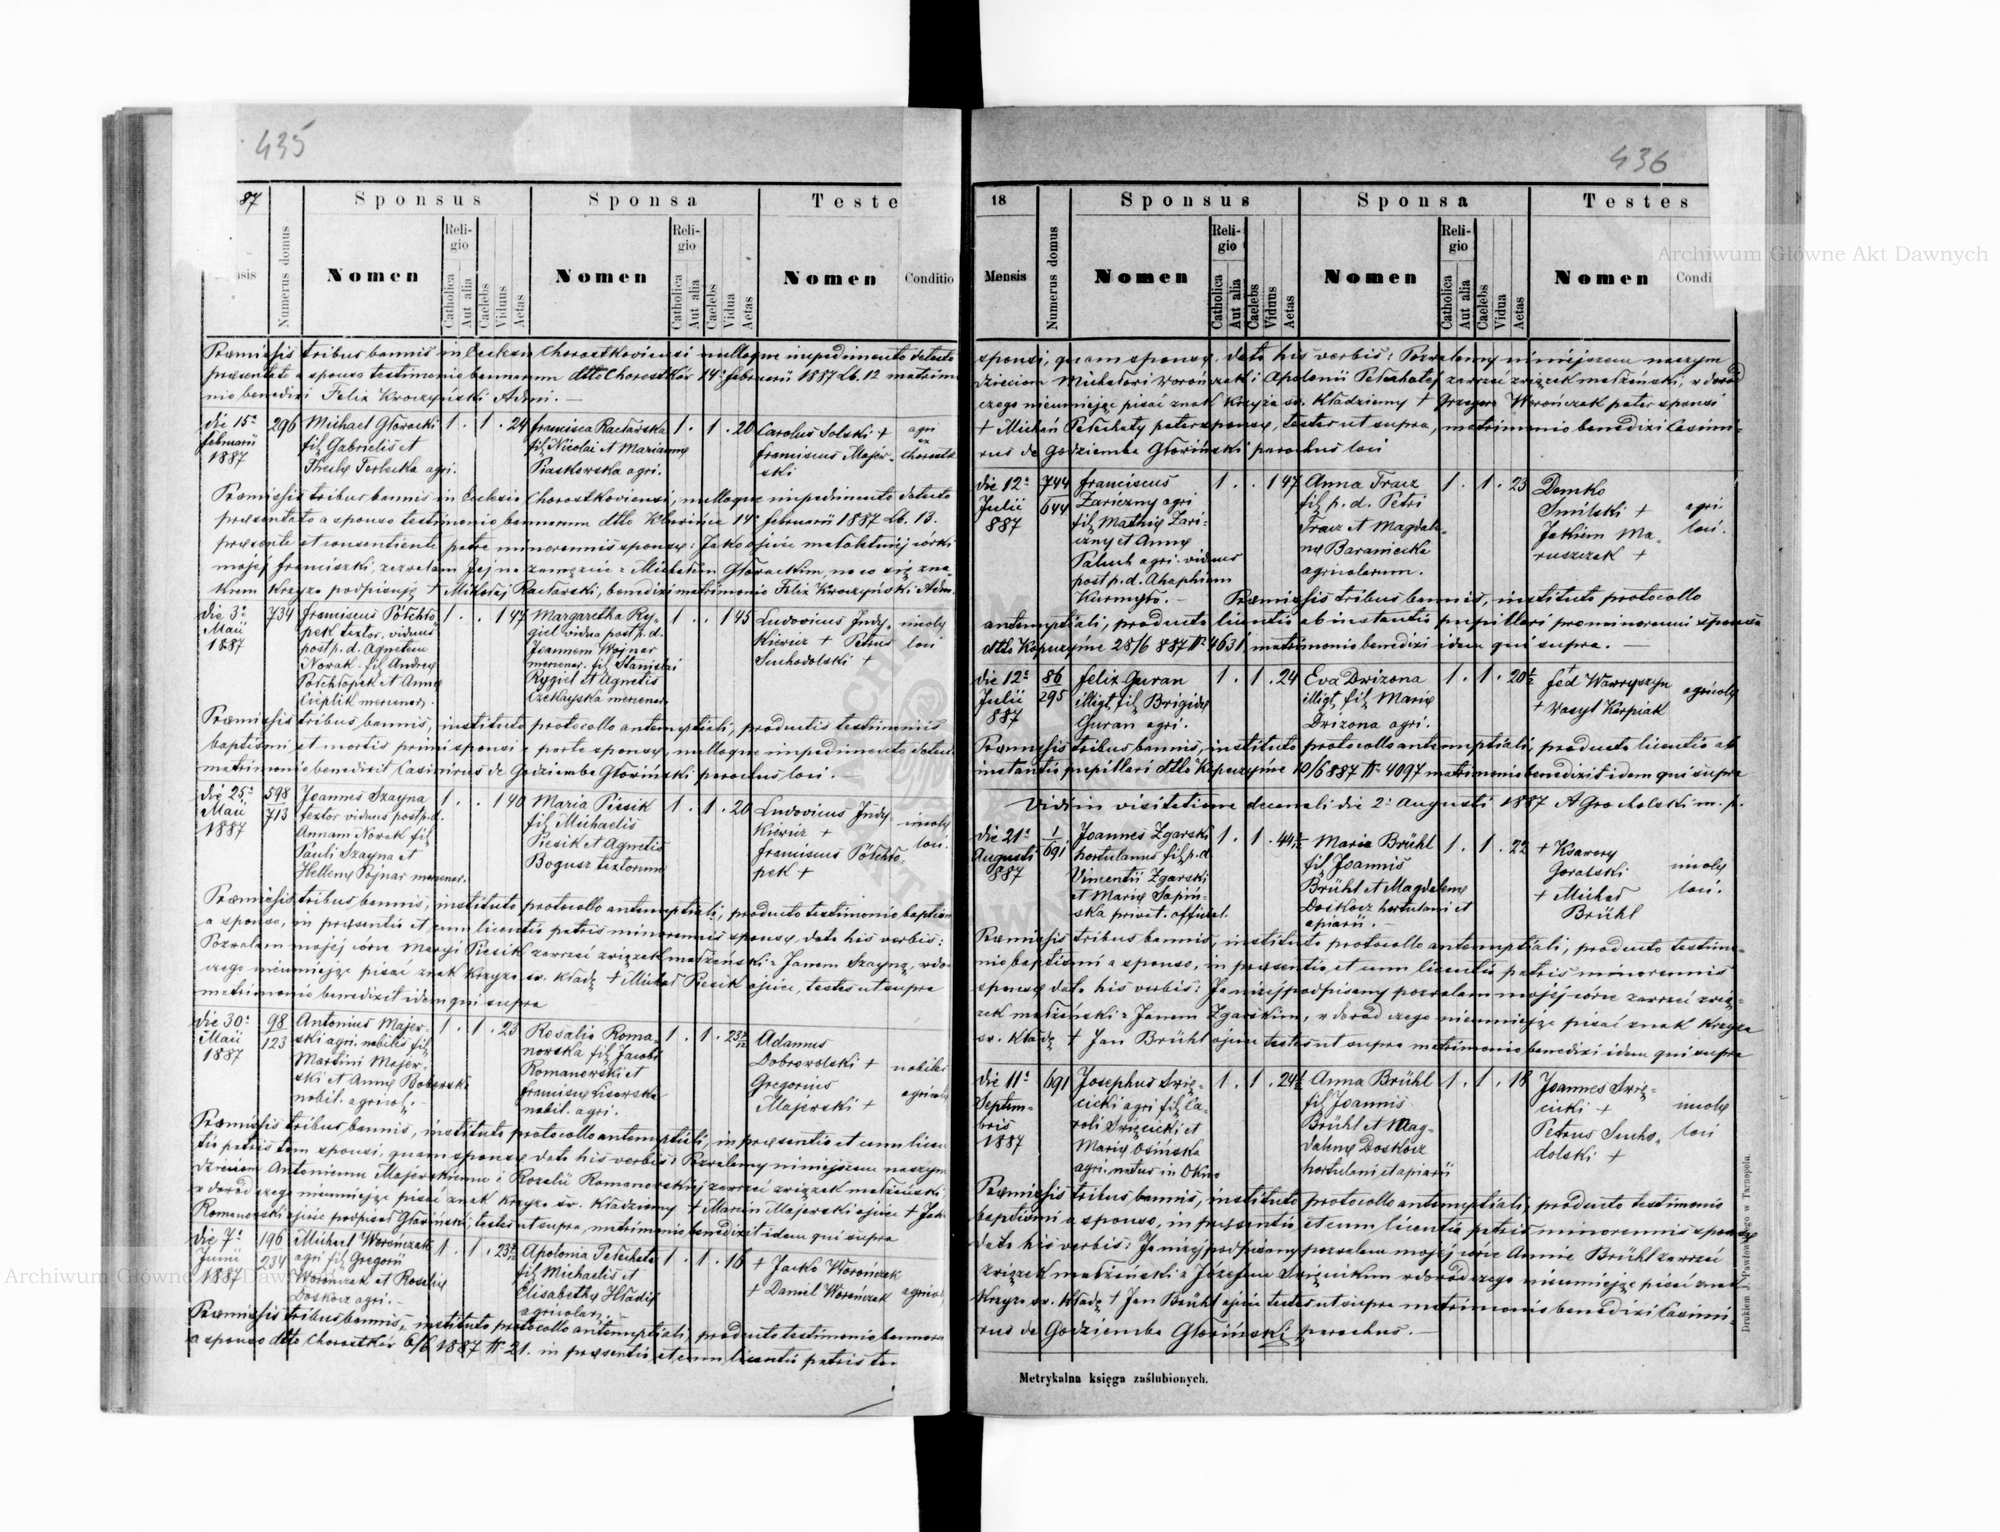 435
87
Sponsus
Sponsa
Teste
Numerus domus
Religio
Religio
nsis
Nomen
Catholica
Aut alia
Caelebs
Viduus
Aetas
Nomen
Catholica
Aut alia
Caelebs
Vidua
Aetas
Nomen
Conditio
Praemissis tribus bannis in Ecclesia Chorostkoviensi nulloque impedimento detecto
praesentato a sponso testimonio bannorum dtto Chorostków 14a februarii 1887 Lb. 12 matrimo
nio benedixi Felix Kroczyński Adm. —
die 15a 296 Michael Głowacki 1 . 1 . 24 Francisca Raclarska 1 . 1 . 20 Carolus Solski + agri
februarii fil. Gabrielis et fil. Nicolai et Mariannę Franciscus Majer- ex
1887 Theclę Terlecka agri. Piaskowska agri. ski Chorostk
Praemissis tribus bannis in Ecclesia Chorostkoviensi, nulloque impedimento detecto
praesentato a sponso testimonio bannorum dtto Klwińce 14a februarii 1887 Lb. 13.
praesente et consentiente patre minorennis sponsę: Jako ojciec małoletniej córki
mojej Franciszki, zezwalam jej na zamęzcie z Michałem Głowackim, na co się zna-
kiem Krzyża podpisuję + Mikołaj Raclarski, benedixi matrimonio Felix Kroczyński Adm.
die 3a 734 Franciscus Półchło- 1 . . 1 47 Margaretha Ry- 1 . . 1 45 Ludovicus Jndy- incolę
Maii pek textor, viduus giel vidua post p. d. kiewicz + Petrus loci
1887 post p. d. Agnetem Joannem Wojnar Suchodolski +
Nowak - fil. Andreę mercenar. fil. Stanislai
Półchłopek et Annę Rygiel et Agnetis
Cieplik mercenar. Czekayska mercenar.
Praemissis tribus bannis, instituto protocollo antenuptiali, productis testimoniis
baptismi et mortis primi sponsi e parte sponsę, nulloque impedimento detecto
matrimonio benedixit Casimirus de Godziemba Głowiński parochus loci. —
die 25a 598 Joannes Szayna 1 . . 1 40 Maria Piesik 1 . 1 . 20 Ludovicus Jndy- incolę
Maii 713 textor viduus post p. d. fil. Michaelis kiewicz + loci.
1887 Annam Nowak fil. Piesik et Agnetis Franciscus Półchło-
Pauli Szayna et Bogusz textorum pek +
Hellenę Pojnar mercenar.
Praemissis tribus bannis, instituto protocollo antenuptiali, producto testimonio baptismi
a sponso, in praesentia et cum licentia patris minorennis sponsę, data his verbis:
Pozwalam mojej córce Maryi Piesik zawrzeć związek małżeński z Janem Szayną, w dowód
czego nieumiejąc pisać znak Krzyża sw. kładę + Michał Piesik ojciec, testes ut supra
matrimonio benedixit idem qui supra
die 30a 98 Antonius Majew- 1 . 1 . 23 Rosalia Roma- 1 . 1 . 23 Adamus
Maii 123 ski agri. nobilis fil. nowska fil. Jacobi Dobrowolski + nobiles
1887 Martini Majew- Romanowski et Gregorius agricolę
ski et Annę Boberski Franciscę Lisowska Majewski +
nobil. agricol. — nobil. agri.
Praemissis tribus bannis, instituto protocollo antenuptiali, in praesentia et cum licen
tia patris tam sponsi, quam sponsę data his verbis: Pozwalamy niniejszem naszym
dzieciom Antoniemu Majewskiemu i Rozalii Romanowskiej zawrzeć związek małżeński,
w dowód czego nieumiejąc pisać znak krzyża św. kładziemy + Marcin Majewski ojciec + Jakób
Romanowski ojciec podpisał Głowiński, testes ut supra, matrimonio benedixit idem qui supra
die 7a 196 Michael Worończak 1 . 1 . 23 Apolonia Petechata 1 . 1 . 16 + Jacko Worończak
Junii 234 agri fil. Gregorii fil. Michaelis et + Daniel Worończak agricolę
1887 Worończak et Rosalię Elisabethę Hładij
Doskocz agri. — agricolar. —
Praemissis tribus bannis, instituto protocollo antenuptiali, producto testimonio bannorum
a sponso dtto Chorostków 6/6 1887 N 21. in praesentia et cum licentia patris tam
436
18
Sponsus
Sponsa
Testes
Mensis
Numerus domus
Nomen
Religio
Catholica
Aut alia
Caelebs
Viduus
Aetas
Nomen
Religio
Catholica
Aut alia
Caelebs
Vidua
Aetas
Nomen
Condi
sponsi, quam sponsę, data his verbis: Pozwalamy niniejszem naszym
dzieciom Michałowi Worończak i Apolonii Petechatej zawrzeć związek małżeński, w dowód
czego nieumiejąc pisać znak Krzyża sw. kładziemy + Grzegorz Worończak pater sponsi
+ Michał Petechaty pater sponsę, testes ut supra, matrimonio benedixi Casimi-
rus de Godziemba Głowiński parochus loci
die 12a 744 Franciscus 1 . . 1 47 Anna Tracz 1 . 1 . 23 Demko
Julii 644 Zariczny agri fil. p. d. Petri Smilski + agri.
887 fil. Mathię Zari- Tracz et Magdale- Jakiem Ma- loci.
czny et Annę nę Baraniecka ruszczak +
Paluch agri. viduus agricolarum.
post p. d. Ahaphiam
Kurmyło. — Praemissis tribus bannis, instituto protocollo
antenuptiali, producto licentia ab instantia pupillari pro minorenni sponsa
dtto Kopyczyńce 28/6 887 N 4631 matrimonio benedixi idem qui supra. —
die 12a 86 Felix Guran 1 . 1 . 24 Eva Drizona 1 . 1 . 20½ Fed Wawryszyn agricolę
Julii 295 illegit. fil. Brigidę illegt. fil. Marię + Wasyl Karpiak
887 Guran agri. Drizona agri.
Praemissis tribus bannis, instituto protocollo antenuptiali, producto licentia ab
instantia pupillari dtto Kopyczyńce 10/6 887 N 4097 matrimonio benedixit idem qui supra
Vidi in visitatione decanali die 2a Augusti 1887 A Grocholski m. p.
die 21a 1 Joannes Zgarski 1 . 1 . 44 Maria Brühl 1 . 1 . 22 + Ksawery
Augusti 691 hortulanus fil. p. d. fil. Joannis Goralski incolę
887 Vincentii Zgarski Brühl et Magdalenę + Michał loci.
et Marię Sapiń- Doskocz hortulani et Brühl
ska privat. official. apiarii. —
Praemissis tribus bannis, instituto protocollo antenuptiali, producto testimo-
nio baptismi a sponso, in praesentia et cum licentia patris minorennis
sponsę data his verbis: Ja niżej podpisany pozwalam mojej córce zawrzeć zwią-
zek małżeński z Janem Zgarskim, w dowód czego nieumiejąc pisać znak Krzyża
sw. kładę + Jan Brühl ojciec testes ut supra matrimonio benedixi idem qui supra
die 11a 691 Josephus Swię- 1 . 1 . 24½ Anna Brühl 1 . 1 . 18 Joannes Swię-
Septem- cicki agri fil. Ca- fil. Joannis cicki + incolę
bris roli Święcicki et Brühl et Mag- Petrus Sucho- loci
1887 Marię Osińska dalenę Doskocz dolski +
agri. natus in Okno hortulani et apiarii
Praemissis tribus bannis, instituto protocollo antenuptiali, producto testimonio
baptismi a sponso, in praesentia et cum licentia patris minorennis sponsę
data his verbis: Ja niżej podpisany pozwalam mojej córce Annie Brühl zawrzeć
związek małżeński z Józefem Święcickim w dowód czego nieumiejąc pisać znak
Krzyża sw. kładę + Jan Brühl ojciec testes ut supra matrimonio benedixi Casimi-
rus de Godziemba Głowiński parochus. —
Metrykalna księga zaślubionych.
Drukiem J. Pawłowskiego w Tarnopolu.
Archiwum Główne Akt Dawnych
Archiwum Główne Akt Dawnych